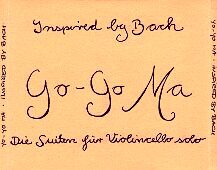 Inspired by Bach
Yo-Yo Ma
Die Suiten für Violoncello solo
YO-YO MA · INSPIRED BY BACH
YO-YO MA · INSPIRED BY BACH